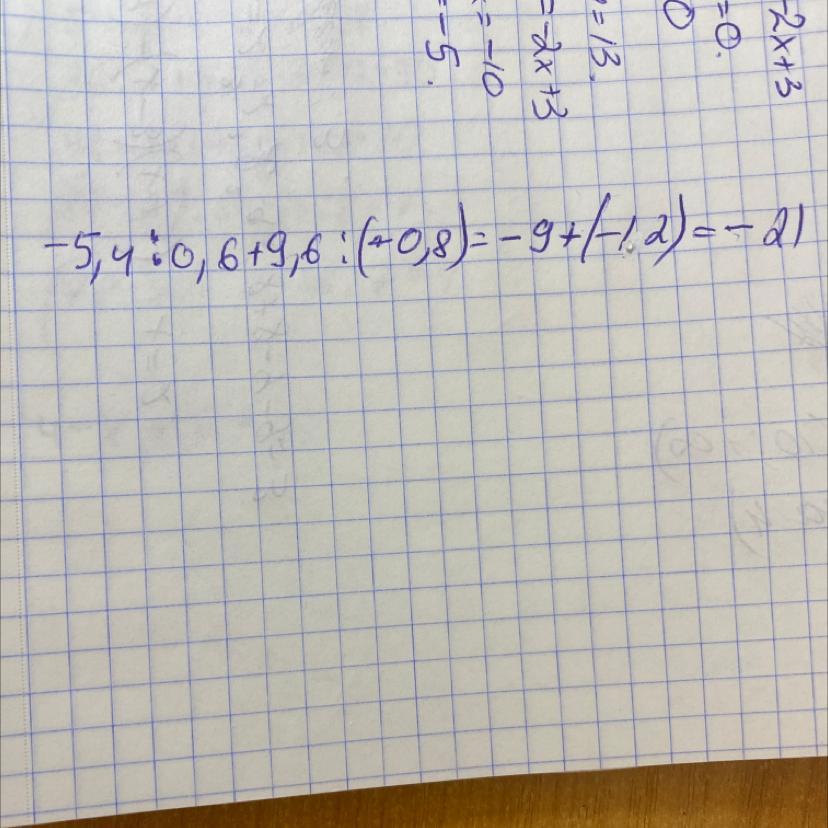 -2x+3
=0.
0
=13.
=-2x+3
=-10
=-5.
-5,4:0,6+9,6:(-0,8)=-9+(-12)=-21